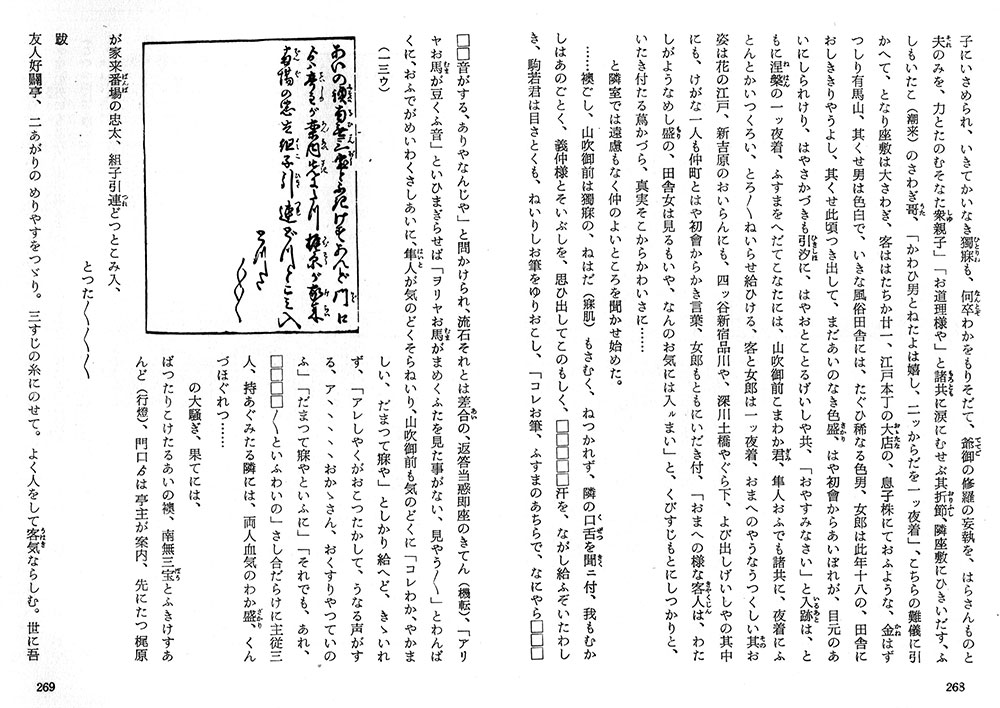 子にいさめられ、いきてかいなき獨寐も、何卒わかをもりそだて、爺御の修羅の妄執を、はらさんものと
夫のみを、力とたのむそなた衆親子」「お道理様や」と諸共に涙にむせぶ其折節、隣座敷にひきいだす、ふ
しもいたこ（潮来）のさわぎ哥、「かわひ男とねたよは嬉し、二ッからだを一ッ夜着」、こちらの難儀に引
かへて、となり座敷は大さわぎ、客ははたちか廿一、江戸本丁の大店の、息子株にておふような、金はず
つしり有馬山、其くせ男は色白で、いきな風俗田舎には、たぐひ稀なる色男、女郎は此年十八の、田舎に
おしききりやうよし、其くせ此頃つき出して、まだあいのなき色盛、はや初會からあいぼれが、目元のあ
いにしられけり、はやさかづきも引汐に、はやおとことるげいしや共、「おやすみなさい」と入跡は、と
もに涅槃の一ッ夜着、ふすまをへだてこなたには、山吹御前こまわか君、隼人おふでも諸共に、夜着にふ
とんとかいつくろい、とろ〳〵ねいらせ給ひける、客と女郎は一ッ夜着、おまへのやうなうつくしい其お
姿は花の江戸、新吉原のおいらんにも、四ッ谷新宿品川や、深川土橋やぐら下、よび出しげいしやの其中
にも、けがな一人も仲町とはや初會からかき言葉、女郎もともにいだき付、「おまへの様な客人は、わた
しがようなめし盛の、田舎女は見るもいや、なんのお気には入ルまい」と、くびすじもとにしつかりと、
いたき付たる蔦かづら、真実そこからかわいさに……
と隣室では遠慮もなく仲のよいところを聞かせ始めた。
……襖ごし、山吹御前は獨寐の、ねはだ（寐肌）もさむく、ねつかれず、隣の口舌を聞ニ付、我もむか
しはあのごとく、義仲様とそいぶしを、思ひ出してこのもしく、□□□□汗を、ながし給ふぞいたわし
き、駒若君は目さとくも、ねいりしお筆をゆりおこし、「コレお筆、ふすまのあちらで、なにやら□□
268
□□音がする、ありやなんじや」と問かけられ、流石それとは差合の、返答当惑即座のきてん（機転）、「アリ
ヤお馬が豆くふ音」といひまぎらせば「ヲリヤお馬がまめくふたを見た事がない、見やう〳〵」とわんば
くに、おふでがめいわくさしあいに、隼人が気のどくそらねいり、山吹御前も気のどくに「コレわか、やかま
しい、だまつて寐や」としかり給へど、きゝいれ
ず、「アレしやくがおこつたかして、うなる声がす
る、アヽヽヽおかゝさん、おくすりやつていの
ふ」「だまつて寐やといふに」「それでも、あれ、
□□□□〳〵といふわいの」さし合だらけに主従三
人、持あぐみたる隣には、両人血気のわか盛、くん
づほぐれつ……
の大騒ぎ、果てには、
ばつたりこけたるあいの襖、南無三宝とふきけすあ
んど（行燈）、門口ゟは亭主が案内、先にたつ梶原
（一三ウ）
が家来番場の忠太、組子引連どつとこみ入、
とつた〳〵〳〵〳〵
跋
友人好鬪亭、二あがりの めりやすをつゞり。三すじの糸にのせて。よく人をして客気ならしむ。世に吾
269